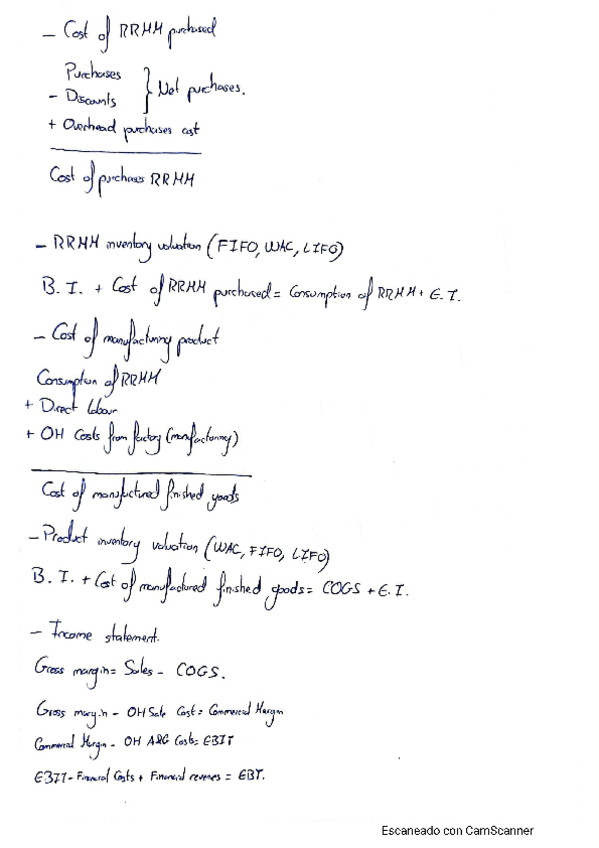 - Cost of RRMM purchased
Purchases
- Discounts } Net purchases.
+ Overhead purchases cost
Cost of purchases RRMM
- RRMM inventory valuation (FIFO, WAC, LIFO)
B. I. + Cost of RRMM purchased = Consumption of RRMM + E. I.
- Cost of manufacturing product
Consumption of RRMM
+ Direct labour
+ OH Costs from factory (manufactoring)
Cost of manufactured finished goods
- Product inventory valuation (WAC, FIFO, LIFO)
B. I. + Cost of manufactured finished goods = COGS + E. I.
- Income statement.
Gross margin = Sales - COGS.
Gross margin - OH Sale Cost = Commercial Margin
Commercial Margin - OH A&G Costs = EBIT
EBIT - Financial Costs + Financial revenes = EBT.
Escaneado con CamScanner